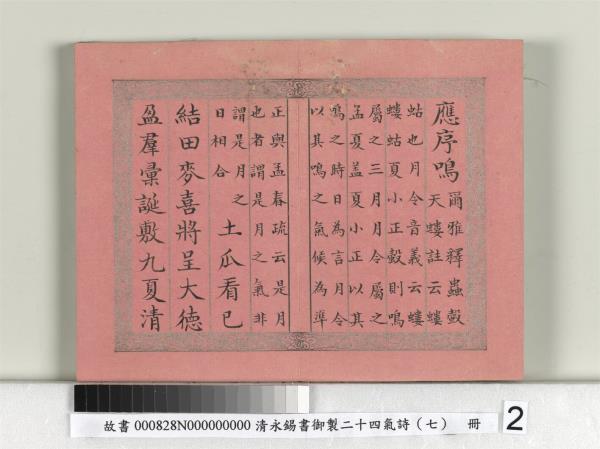 應序鳴
爾雅釋蟲螜
天螻註云螻
蛄也月令音義云螻
螻蛄夏小正螜則鳴
屬之三月月令屬之
孟夏蓋夏小正以其
鳴之時日為言月令
以其鳴之氣候為準
正與孟春疏云是月
也者謂是月之氣非
謂是月之
日相合
土瓜看已
結田麥喜將呈大德
盈羣彙誕敷九夏清
故書 000828N000000000 清永錫書御製二十四氣詩（七） 冊
2